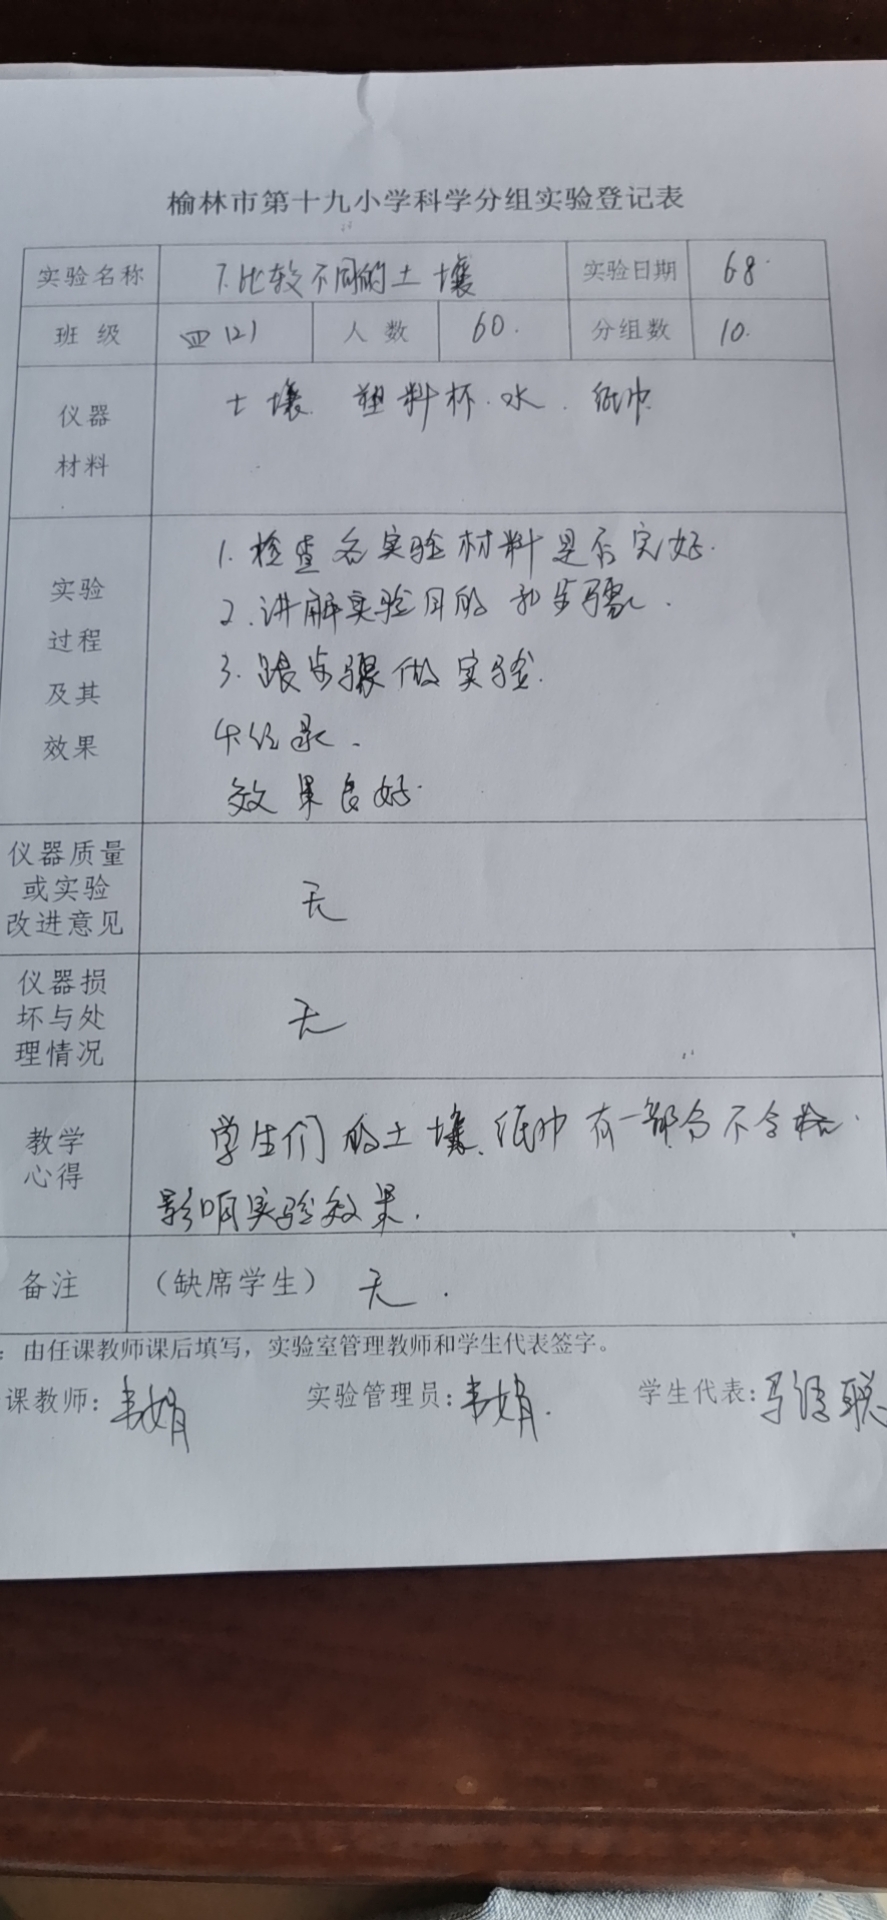 榆林市第十九小学科学分组实验登记表
实验名称 7.比较不同的土壤 实验日期 6.8.
班级 四(2) 人数 60. 分组数 10.
仪器 土壤、塑料杯.水.纸巾
材料
1.检查各实验材料是否完好.
实验 2.讲解实验目的和步骤.
过程
及其 3.跟步骤做实验.
效果 4.记录.
效果良好.
仪器质量
或实验 无
改进意见
仪器损
坏与处 无
理情况
教学 学生们的土壤、纸巾有一部分不合格.
心得
影响实验效果.
备注 (缺席学生) 无.
:由任课教师课后填写,实验室管理教师和学生代表签字。
课教师: 娟 实验管理员: 娟. 学生代表:马 聪